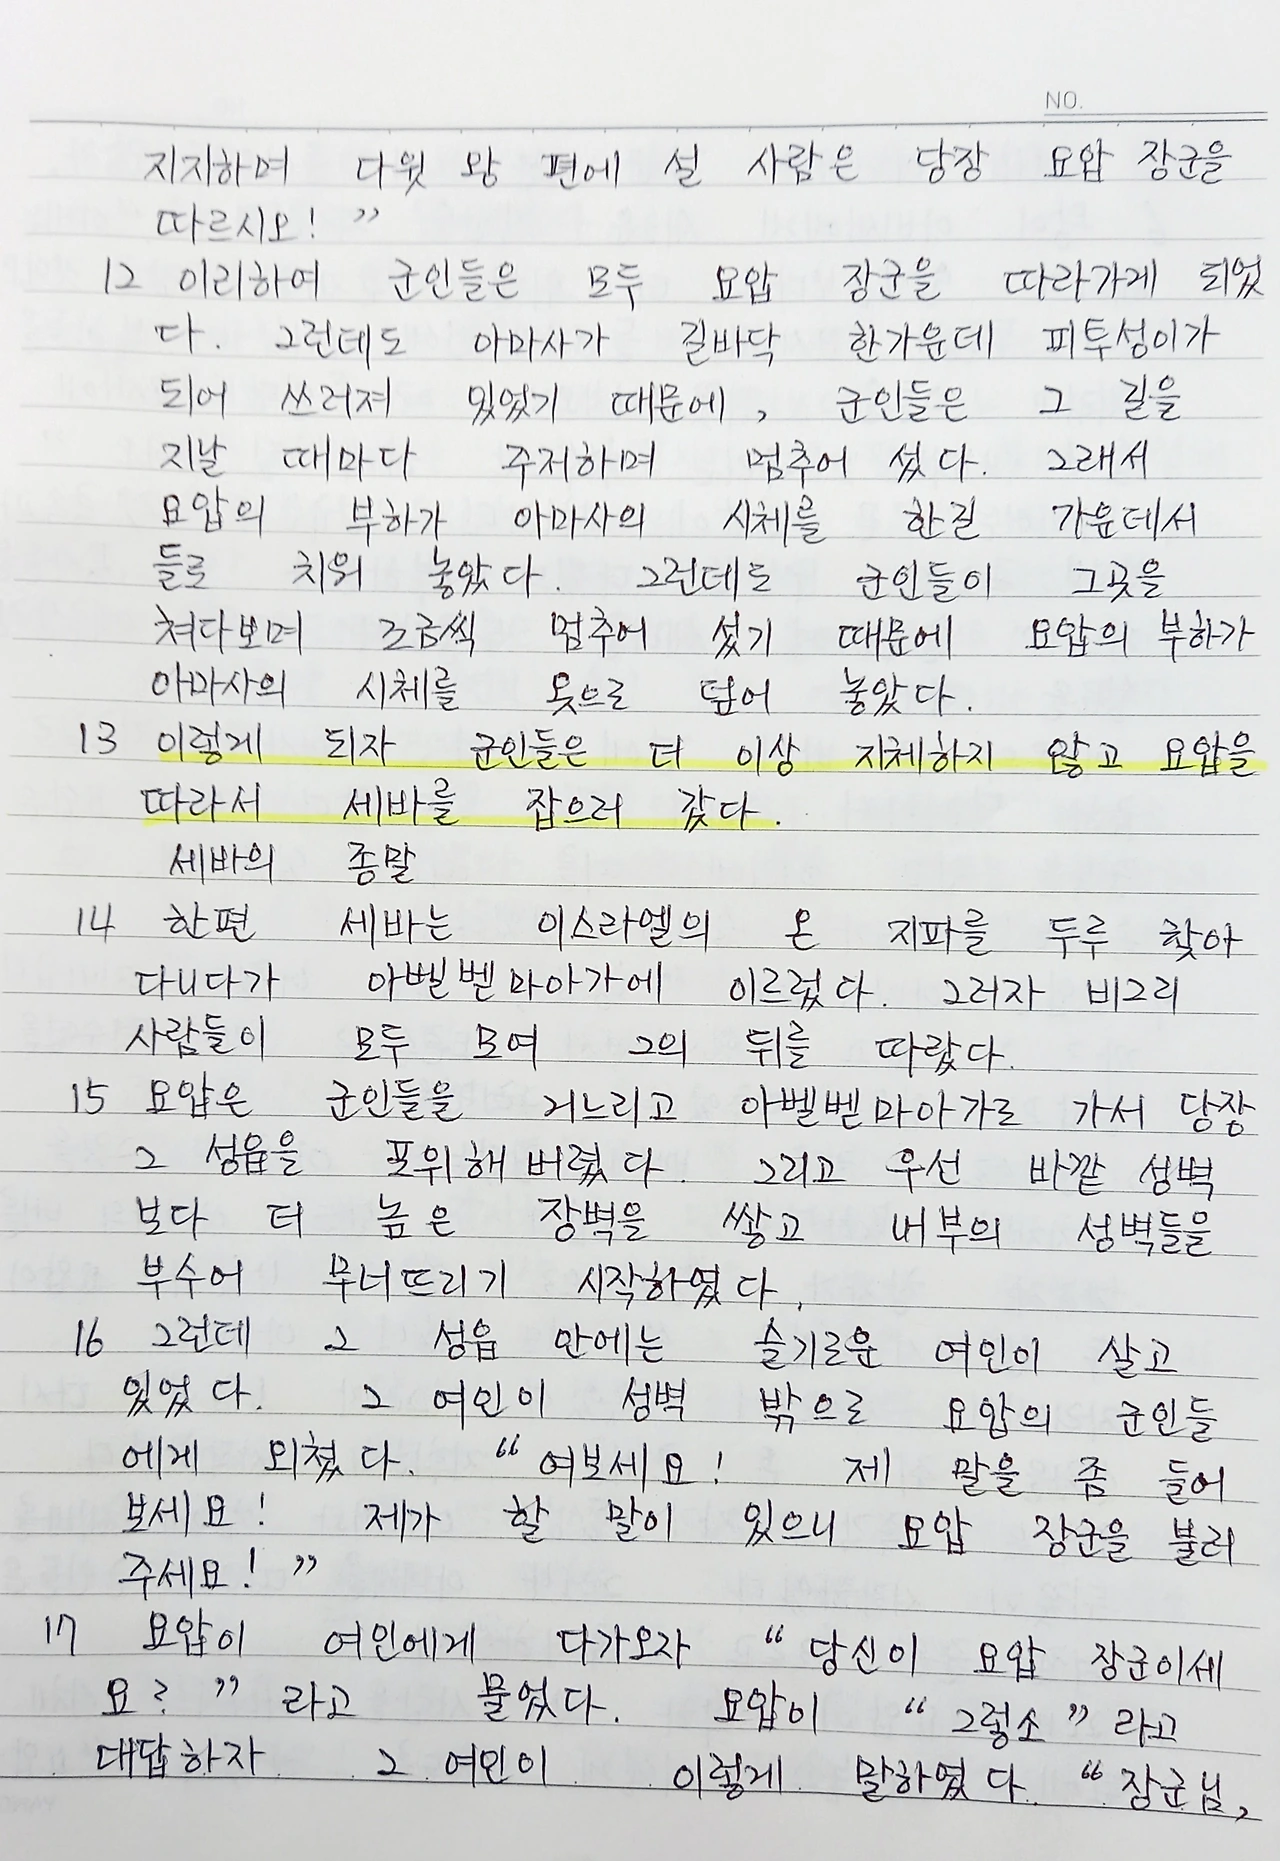 NO.
지지하며 다윗 왕 편에 설 사람은 당장 요압 장군을
따르시오! ”
12 이리하여 군인들은 모두 요압 장군을 따라가게 되었
다. 그런데도 아마사가 길바닥 한가운데 피투성이가
되어 쓰러져 있었기 때문에, 군인들은 그 길을
지날 때마다 주저하며 멈추어 섰다. 그래서
요압의 부하가 아마사의 시체를 한길 가운데서
들로 치워 놓았다. 그런데도 군인들이 그곳을
쳐다보며 조금씩 멈추어 섰기 때문에 요압의 부하가
아마사의 시체를 옷으로 덮어 놓았다.
13 이렇게 되자 군인들은 더 이상 지체하지 않고 요압을
따라서 세바를 잡으러 갔다.
세바의 종말
14 한편 세바는 이스라엘의 온 지파를 두루 찾아
다니다가 아벨벧마아가에 이르렀다. 그러자 비그리
사람들이 모두 모여 그의 뒤를 따랐다.
15 요압은 군인들을 거느리고 아벨벧마아가로 가서 당장
그 성읍을 포위해 버렸다. 그리고 우선 바깥 성벽
보다 더 높은 장벽을 쌓고 내부의 성벽들을
부수어 무너뜨리기 시작하였다.
16 그런데 그 성읍 안에는 슬기로운 여인이 살고
있었다. 그 여인이 성벽 밖으로 요압의 군인들
에게 외쳤다. “여보세요! 제 말을 좀 들어
보세요! 제가 할 말이 있으니 요압 장군을 불러
주세요! ”
17 요압이 여인에게 다가오자 “당신이 요압 장군이세
요? ” 라고 물었다. 요압이 “그렇소” 라고
대답하자 그 여인이 이렇게 말하였다. “장군님,